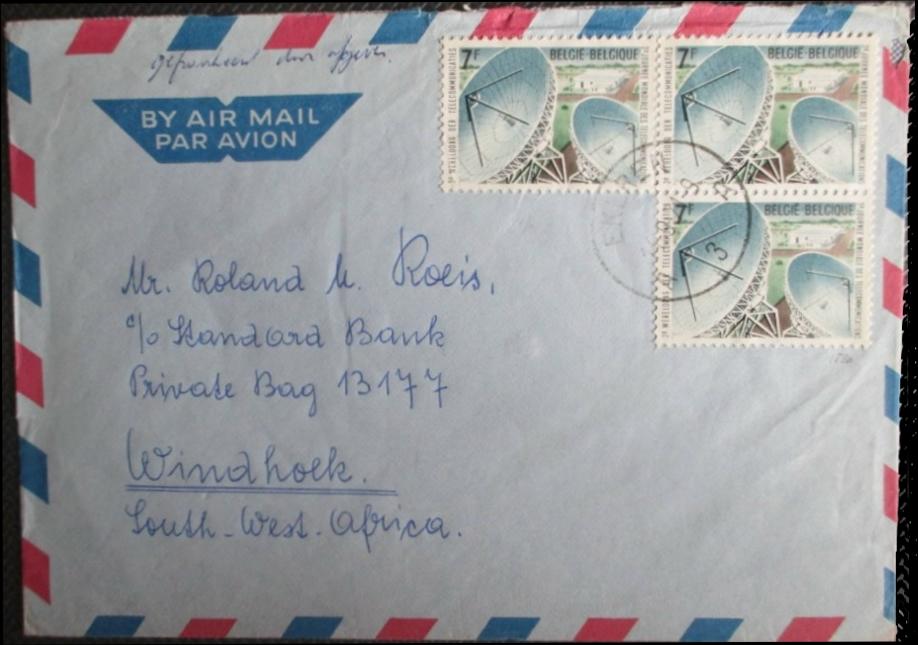 gefrankeerd door afgever.
BY AIR MAIL
PAR AVION
7F BELGIE-BELGIQUE
3e WERELDDAG DER TELECOMMUNICATIES
3e JOURNEE MONDIALE DES TELECOMMUNICATIONS
7F BELGIE-BELGIQUE
3e WERELDDAG DER TELECOMMUNICATIES
3e JOURNEE MONDIALE DES TELECOMMUNICATIONS
7F BELGIE-BELGIQUE
3e WERELDDAG DER TELECOMMUNICATIES
3e JOURNEE MONDIALE DES TELECOMMUNICATIONS
Mr. Roland M. Roeis,
c/o Standard Bank
Private Bag 13177
Windhoek.
South-West-Africa.